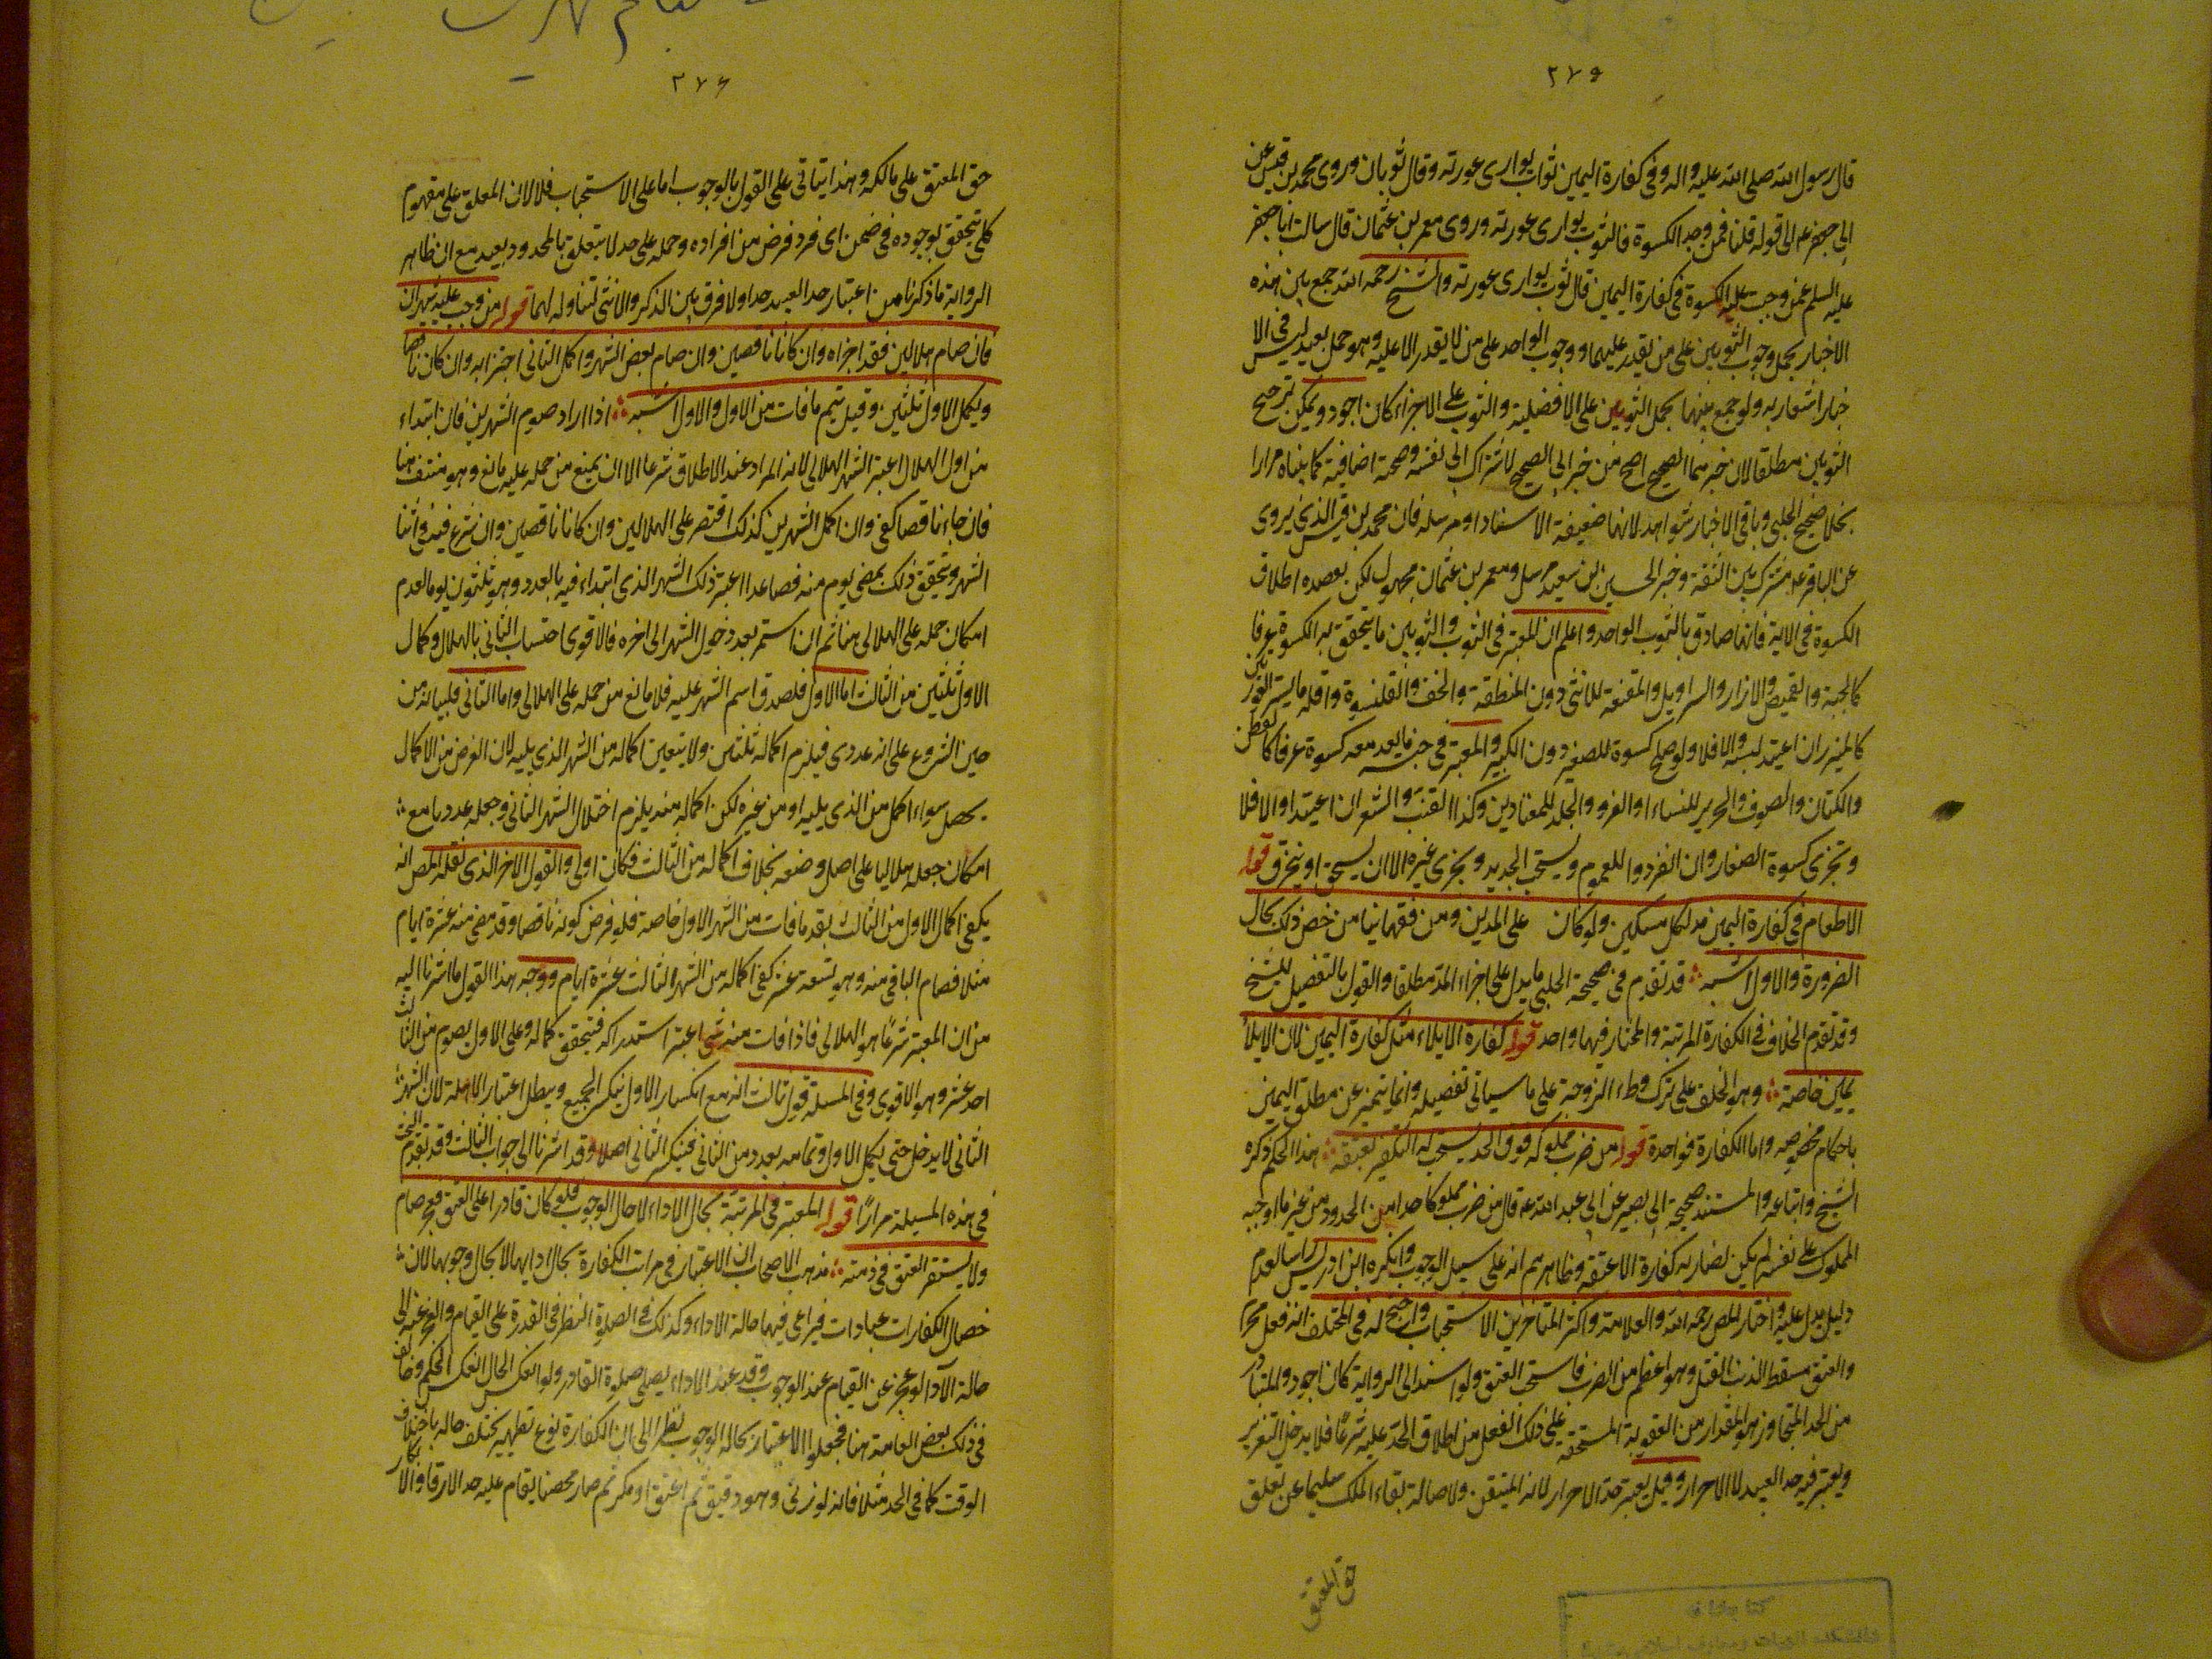 ٢٧٥
قال رسول الله صلى الله عليه واله وفي كفارة اليمين ثواب يوارى عورته وقال ثوبان وروى محمد بن قيس عن
ابى جعفر ع الى قوله قلنا فمن وجد الكسوة قال ثوب يوارى عورته وروى معمر بن عثمان قال سالت ابا جعفر
عليه السلم عمن وجبت عليه الكسوة فى كفارة اليمين قال ثوب يوارى عورته والشيخ رحمه الله جمع بين هذه
الاخبار بحمل وجوب الثوبين على من يقدر عليهما ووجوب الواحد على من لا يقدر الا عليه وهو حمل بعيد ليس فى الا
خبار اشعار به ولو جمع بينهما بحمل الثوبين على الافضلية والثوب على الاجزاء كان اجود ويمكن ترجيح
الثوبين مطلقا لان خبرهما الصحيح اصح من خبر ابى الصحيح لاشتراك ابى نفسه وصحة اضافية كما بيناه مرارا
بخلاف صحيح الحلبى وباقى الاخبار شواهد لانها ضعيفة الاسناد او مرسله فان محمد بن قيس الذى يروى
عن الباقر ع مشترك بين الثقة وخبر الحسين بن سعيد مرسل ومعمر بن عثمان مجهول لكن يعضده اطلاق
الكسوة فى الاية فانها صادق بالثوب الواحد واعلم ان المعتبر فى الثوب والثوبين ما يتحقق به الكسوة عرفا
كالجبة والقميص والازار والسراويل والمقنعة للانثى دون المنطقة والخف والقلنسوة واقله ما يستر العورتين
كالميزر ان اعتيد لبسه والا فلا ولو صلح كسوة للصغير دون الكبير والمعتبر فى جنسه ما يعد معه كسوة عرفا كالقطن
والكتان والصوف والحرير للنساء او الفرو والجلد للمعتادين وكذا القنب والشعر ان اعتيد او الا فلا
وتجزى كسوة الصغار وان انفردوا للعموم ويستحب الجديد ويجزى غيره الا ان يسحق او ينخرق قوله
الاطعام فى كفارة اليمين مد لكل مسكين ولو كان على المدين ومن فقهائنا من خص ذلك بحال
الضرورة والاول اشبه قد تقدم فى صحيحة الحلبى ما يدل على اجزاء المد مطلقا والقول بالتفصيل للشيخ
وقد تقدم الخلاف فى الكفارة المرتبة والمختار فيهما واحد قوله كفارة الايلاء مثل كفارة اليمين لان الايلاء
يمين خاصة وهو الحلف على ترك وطء الزوجة على ما سياتى تفصيله وانما يتميز عن مطلق اليمين
باحكام مخصوصه واما الكفارة فواحدة قوله من ضرب مملوكه فوق الحد يستحب له التكفير بعتقه هذا الحكم ذكره
الشيخ واتباعه والمستند صحيحة ابى بصير عن ابى عبد الله ع قال من ضرب مملوكا حدا من الحدود من غير ما اوجبه
المملوك على نفسه لم يكن لضاربه كفارة الا عتقه وظاهرهم انه على سبيل الوجوب وانكره ابن ادريس راسا لعدم
دليل يدل عليه واختار المص رحمه الله والعلامة واكثر المتاخرين الاستحباب واحتج له فى المختلف انه فعل محرم
والعتق مسقط الذنب القتل وهو اعظم من الضرب فاستحب العتق ولو استند الى الرواية كان اجود والمتبادر
من الحد المتجاوز هو المقدار من العقوبة المستحقه على ذلك الفعل من اطلاق الحد عليه شرعا فلا يدخل التعزير
ويعتبر فيه حد العبيد لا الاحرار وقيل يعتبر حد الاحرار لانه المتيقن ولاصالة بقاء الملك سليما عن تعلق
حق المعتق
٢٧٦
حق المعتق على مالكه وهذا يتاتى على القول بالوجوب اما على الاستحباب فلا لان المعلق على مفهوم
كلى يتحقق بوجوده فى ضمن اى فرد فرض من افراده وحمله على حد لا يتعلق بالمحدود بعيد مع ان ظاهر
الرواية ما ذكرنا من اعتبار حد العبيد حدا ولا فرق بين الذكر والانثى لتناوله لهما قوله من وجب عليه شهران
فان صام هلالين فقد اجزاه وان كانا ناقصين وان صام بعض الشهر واكمل الثانى اجتزا به وان كان ناقصا
ويكمل الاول ثلثين وقيل يتم ما فات من الاول والاول اشبه اذا اراد صوم الشهرين فان ابتداء
من اول الهلال اعتبر الشهر الهلالى لانه المراد عند الاطلاق شرعا الا ان يمنع من حمله عليه مانع وهو منتف هنا
فان جاء ناقصا كفى وان اكمل الشهرين كذلك اقتصر على الهلالين وان كانا ناقصين وان شرع فيه فى اثنا
الشهر ويتحقق ذلك بمضى يوم منه فصاعدا اعتبر ذلك الشهر الذى ابتداء فيه بالعدد وهو ثلثون يوما لعدم
امكان حمله على الهلالى هنا ثم ان استمر بعد دخول الشهر الى اخره فالاقوى احتساب الثانى بالهلال وكمال
الاول ثلثين من الثالث اما الاول فلصدق اسم الشهر عليه فلا مانع من حمله على الهلالى واما الثانى فلبيانه من
حين الشروع على انه عددى فيلزم اكماله ثلثين ولا يتعين اكماله من الشهر الذى يليه لان الغرض من الاكمال
يحصل سواء اكمل من الذى يليه او من غيره لكن اكماله منه يلزم اختلال الشهر الثانى وجعله عدديا مع
امكان جعله هلاليا على اصل وضعه بخلاف اكماله من الثالث فكان اولى والقول الاخر الذى نقله المص انه
يكفى اكمال الاول من الثالث بقدر ما فات من الشهر الاول خاصة فلو فرض كونه ناقصا وقد مضى منه عشرة ايام
مثلا فصام الباقى منه وهو تسعة عشر كفى اكماله من الشهر الثالث عشرة ايام ووجه هذا القول ما اشرنا اليه
من ان المعتبر شرعا هو الهلالى فاذا فات منه شى اعتبر استدراكه فيتحقق كماله وعلى الاول يصوم من الثالث
احد عشر وهو الاقوى وفى المسئلة قول ثالث انه مع انكسار الاول ينكسر الجميع ويبطل اعتبار الاهلة لان الشهر
الثانى لا يدخل حتى يكمل الاول وتمامه بعدد من الثانى فينكسر الثانى اصلا وقد اشرنا الى جواب الثالث وقد تقدم البحث
فى هذه المسيلة مرارا قوله المعتبر فى المرتبة بحال الاداء لا حال الوجوب فلو كان قادرا على العتق فعجز صام
ولا يستقر العتق فى ذمته مذهب الاصحاب ان الاعتبار فى مرات الكفارة بحال ادايها لا بحال وجوبها لان
خصال الكفارات عبادات فيراعى فيها حالة الاداء وكذلك فى الصلوة النظر فى القدرة على القيام والعجز عنه الى
حالة الآداء لو عجز عن القيام عند الوجوب وقدر عند الاداء يصلى صلوة القادر ولو انعكس الحال انعكس الحكم وخالف
فى ذلك بعض العامة هنا فجعلوا الاعتبار بحالة الوجوب نظرا الى ان الكفارة نوع تطهير يختلف حاله باختلاف
الوقت كما فى الحد مثلا فانه لو زنى وهو رقيق ثم اعتق او بكر ثم صار محصنا يقام عليه حد الارقا والابكار